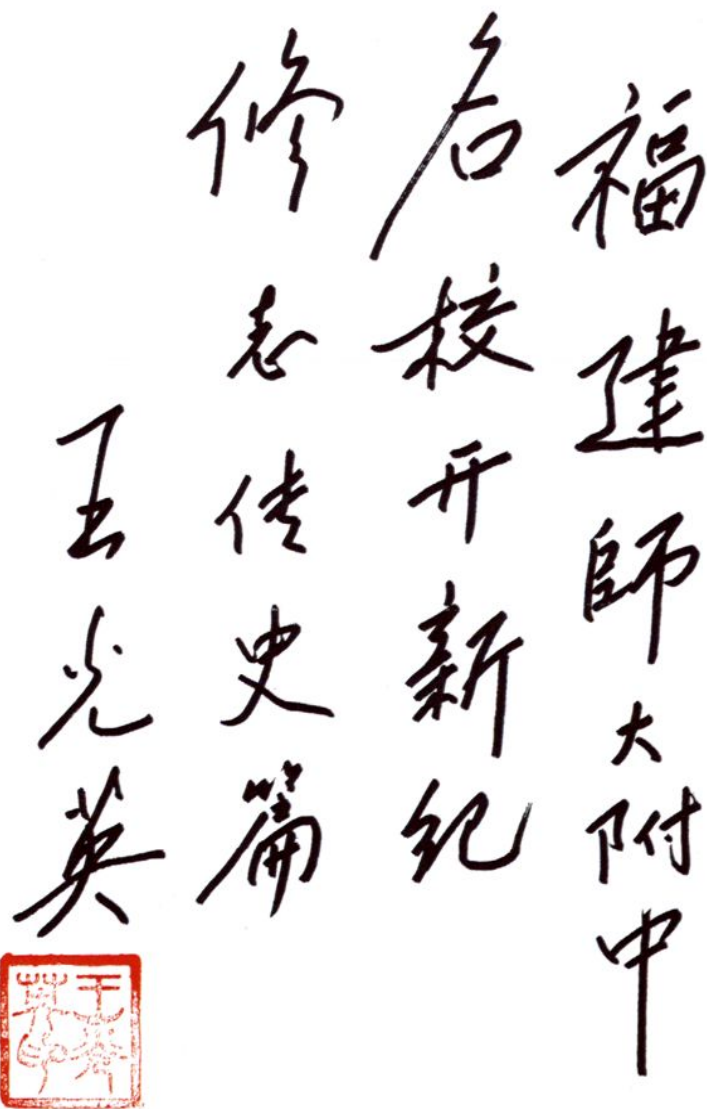 福建師大附中
名校开新纪
修志传史篇
王光英
王光英印